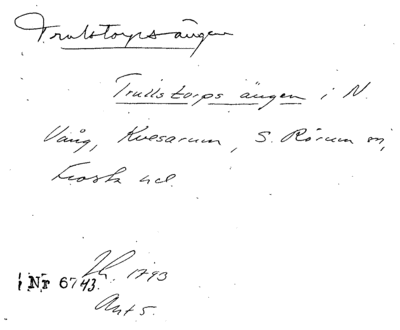 Trulstorpsängen
Trulls torps ängen i N.
Vång, Kvesarum, S. Rörum sn,
Frosta hd.
Lh. 1793
Nr 6743.
Akt 5.